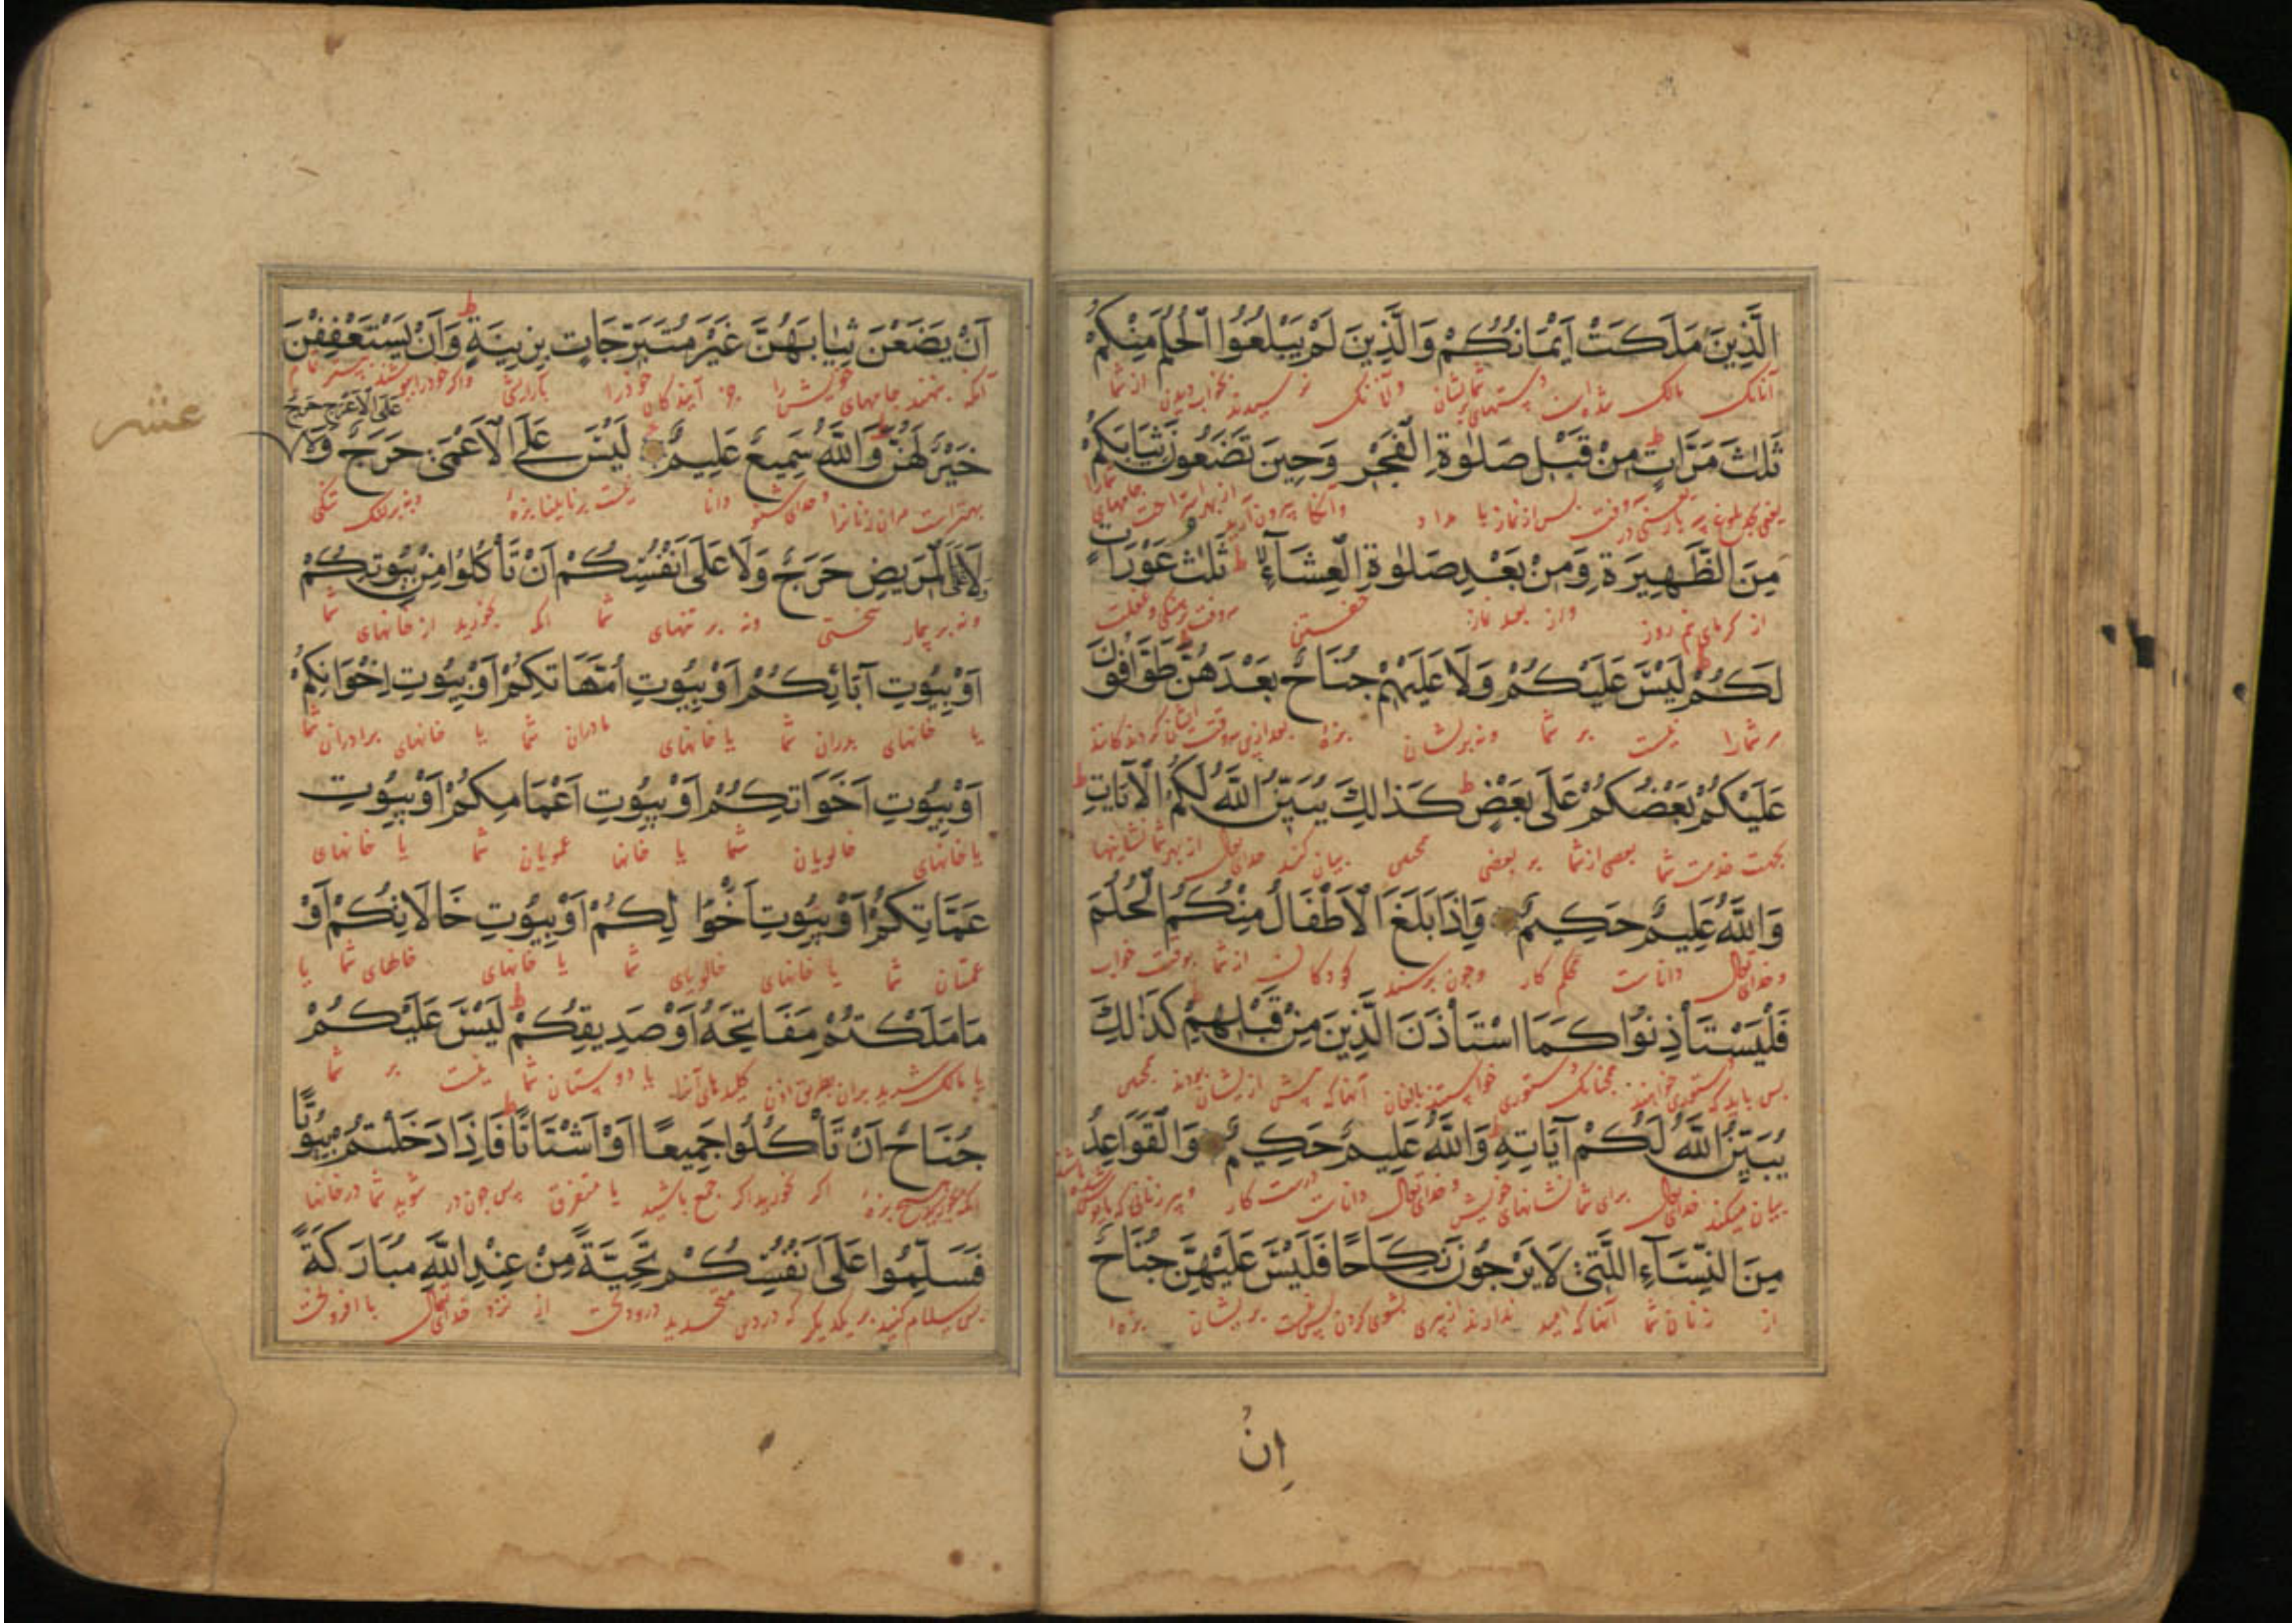 الَّذِينَ مَلَكَتْ اَيْمَانُكُمْ وَالَّذِينَ لَمْ يَبْلُغُوا الْحُلُمَ مِنْكُمْ
آنانک مالک شده است دستهای شما ایشان وآنانک نرسیدند بخواب دیدن از شما
ثَلٰثَ مَرَّاتٍ مِنْ قَبْلِ صَلٰوةِ الْفَجْرِ وَحِينَ تَضَعُونَ ثِيَابَكُمْ
مِنَ الظَّهِيرَةِ وَمِنْ بَعْدِ صَلٰوةِ الْعِشَآءِ ثَلٰثُ عَوْرَاتٍ
از کرمای نیم روز واز بعد نماز خفتن
لَكُمْ لَيْسَ عَلَيْكُمْ وَلَا عَلَيْهِمْ جُنَاحٌ بَعْدَهُنَّ طَوَّافُونَ
مر شمارا نیست بر شما ونه بریشان بزهٔ
عَلَيْكُمْ بَعْضُكُمْ عَلَى بَعْضٍ كَذٰلِكَ يُبَيِّنُ اللّٰهُ لَكُمُ الْآيَاتِ
بجهت خدمت شما بعضی از شما بر بعضی همچنین بیان کند خدای تعالی از بهر شما نشانیها
وَاللّٰهُ عَلِيمٌ حَكِيمٌ وَاِذَا بَلَغَ الْاَطْفَالُ مِنْكُمُ الْحُلُمَ
وخدای تعالی داناست محکم کار وجون برسند کودکان از شما بوقت خواب
فَلْيَسْتَأْذِنُوا كَمَا اسْتَأْذَنَ الَّذِينَ مِنْ قَبْلِهِمْ كَذٰلِكَ
بس باید که دستوری خواهند همچنانک دستوری خواستند بالغان آنها که پیش از یشان بودند همچنین
يُبَيِّنُ اللّٰهُ لَكُمْ آيَاتِهِ وَاللّٰهُ عَلِيمٌ حَكِيمٌ وَالْقَوَاعِدُ
بیان میکند خدای تعالی برای شما نشانهای خویش وخدای تعالی داناست درست کار وپیر زنانی که
مِنَ النِّسَآءِ اللَّتِي لَا يَرْجُونَ نِكَاحًا فَلَيْسَ عَلَيْهِنَّ جُنَاحٌ
از زنان شما آنها که امید ندارند از پیری بشوی کردن پس نیست بریشان بزه
اِنْ
اَنْ يَضَعْنَ ثِيَابَهُنَّ غَيْرَ مُتَبَرِّجَاتٍ بِزِينَةٍ وَاَنْ يَسْتَعْفِفْنَ
آنکه بنهند جامهای خویش را جز آیندکان خودرا بآرایش
عَلَى الْاَعْرَجِ حَرَجٌ
عشر
خَيْرٌ لَهُنَّ وَاللّٰهُ سَمِيعٌ عَلِيمٌ لَيْسَ عَلَى الْاَعْمَى حَرَجٌ وَلَا
بهتر است مران زنانرا وخدای شنو دانا نیست بر نابینا بزهٔ ونه بر لنک تنکی
وَلَا عَلَى الْمَرِيضِ حَرَجٌ وَلَا عَلَى اَنْفُسِكُمْ اَنْ تَأْكُلُوا مِنْ بُيُوتِكُمْ
ونه بر بیمار سختی ونه بر تنهای شما انکه بخورید از خانهای شما
اَوْ بُيُوتِ آبَائِكُمْ اَوْ بُيُوتِ اُمَّهَاتِكُمْ اَوْ بُيُوتِ اِخْوَانِكُمْ
یا خانهای بدران شما یا خانهای مادران شما یا خانهای برادران شما
اَوْ بُيُوتِ اَخَوَاتِكُمْ اَوْ بُيُوتِ اَعْمَامِكُمْ اَوْ بُيُوتِ
یا خانهای خالویان شما یا خانها عمویان شما یا خانهای
عَمَّاتِكُمْ اَوْ بُيُوتِ اَخْوَالِكُمْ اَوْ بُيُوتِ خَالَاتِكُمْ اَوْ
عمتان شما یا خانهای خالویای شما یا خانهای خالهای شما یا
مَا مَلَكْتُمْ مَفَاتِحَهُ اَوْ صَدِيقِكُمْ لَيْسَ عَلَيْكُمْ
یا مالک شدید بران بطریق اذن کلیدهای آنرا یا دوستان شما نیست بر شما
جُنَاحٌ اَنْ تَأْكُلُوا جَمِيعًا اَوْ اَشْتَاتًا فَاِذَا دَخَلْتُمْ بُيُوتًا
بزهٔ اکر بخورید اکر جمع باشید یا متفرق بس جون در شوید شما در خانها
فَسَلِّمُوا عَلَى اَنْفُسِكُمْ تَحِيَّةً مِنْ عِنْدِ اللّٰهِ مُبَارَكَةً
بس سلام کنید بر یکدیکر که در دین متحدید درود تحیت از نزد خدای تعالی با افزونی